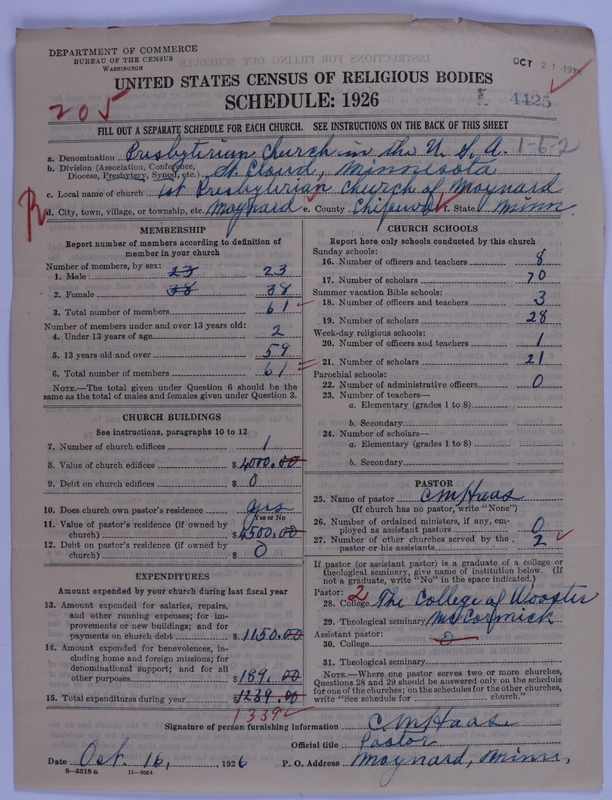 DEPARTMENT OF COMMERCE
BUREAU OF THE CENSUS
WASHINGTON
OCT 21 1926
UNITED STATES CENSUS OF RELIGIOUS BODIES
SCHEDULE: 1926
205
4425
FILL OUT A SEPARATE SCHEDULE FOR EACH CHURCH. SEE INSTRUCTIONS ON THE BACK OF THIS SHEET
a. Denomination Presbyterian Church in the U. S. A. 1-6-2
b. Division (Association, Conference, Diocese, Presbytery, Synod, etc.) St. Cloud, Minnesota
c. Local name of church 1st Presbyterian Church of Maynard
d. City, town, village, or township, etc. Maynard e. County Chipewa f. State Minn.
MEMBERSHIP
Report number of members according to definition of member in your church
Number of members, by sex:
1. Male 23 23
2. Female 38 38
3. Total number of members 61
Number of members under and over 13 years old:
4. Under 13 years of age 2
5. 13 years old and over 59
6. Total number of members 61
NOTE.—The total given under Question 6 should be the same as the total of males and females given under Question 3.
CHURCH BUILDINGS
See instructions, paragraphs 10 to 12
7. Number of church edifices 1
8. Value of church edifices $4000.00
9. Debt on church edifices $ 0
10. Does church own pastor's residence yes
Yes or No
11. Value of pastor's residence (if owned by church) $4500.00
12. Debt on pastor's residence (if owned by church) $ 0
EXPENDITURES
Amount expended by your church during last fiscal year
13. Amount expended for salaries, repairs, and other running expenses; for improvements or new buildings; and for payments on church debt $1150.00
14. Amount expended for benevolences, including home and foreign missions; for denominational support; and for all other purposes $189.00
15. Total expenditures during year $1239.00
1339
CHURCH SCHOOLS
Report here only schools conducted by this church
Sunday schools:
16. Number of officers and teachers 8
17. Number of scholars 70
Summer vacation Bible schools:
18. Number of officers and teachers 3
19. Number of scholars 28
Week-day religious schools:
20. Number of officers and teachers 1
21. Number of scholars 21
Parochial schools:
22. Number of administrative officers 0
23. Number of teachers—
a. Elementary (grades 1 to 8)
b. Secondary
24. Number of scholars—
a. Elementary (grades 1 to 8)
b. Secondary
PASTOR
25. Name of pastor C M Haas
(If church has no pastor, write "None")
26. Number of ordained ministers, if any, employed as assistant pastors 0
27. Number of other churches served by the pastor or his assistants 2
If pastor (or assistant pastor) is a graduate of a college or theological seminary, give name of institution below. (If not a graduate, write "No" in the space indicated.)
Pastor: 2
28. College The College of Wooster
29. Theological seminary McCormick
Assistant pastor:
30. College 0
31. Theological seminary
NOTE.—Where one pastor serves two or more churches, Questions 28 and 29 should be answered only on the schedule for one of the churches; on the schedules for the other churches, write "See schedule for church."
Signature of person furnishing information C M Haas
Official title Pastor
Date Oct. 16, 1926 P. O. Address Maynard, Minn.
8-5518 a 11-9054